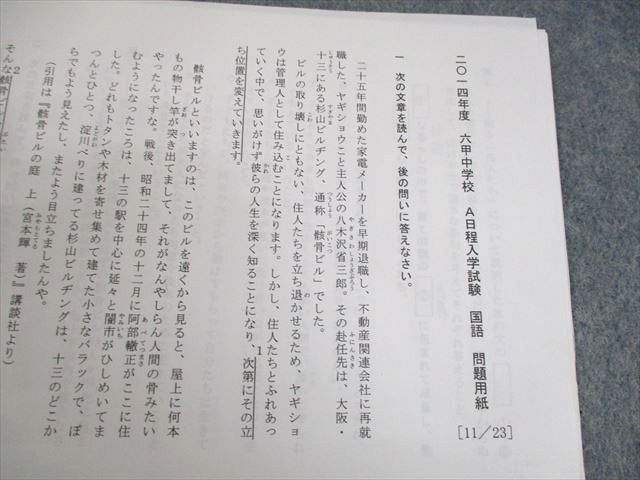 二〇一四年度　六甲中学校　A日程入学試験　国語　問題用紙
[11/23]
一　次の文章を読んで、後の問いに答えなさい。
二十五年間勤めた家電メーカーを早期退職し、不動産関連会社に再就
職した、ヤギショウこと主人公の八木沢省三郎。その赴任先は、大阪・
十三にある杉山ビルヂング、通称「骸骨ビル」でした。
ビルの取り壊しにともない、住人たちを立ち退かせるため、ヤギショ
ウは管理人として住み込むことになります。しかし、住人たちとふれあっ
ていく中で、思いがけず彼らの人生を深く知ることになり、1次第にその立
ち位置を変えていきます。
骸骨ビルといいますのは、このビルを遠くから見ると、屋上に何本
もの物干し竿が突き出てまして、それがなんやしらん人間の骨みたい
やったんですな。戦後、昭和二十四年の十二月に阿部轍正がここに住
むようになったころは、十三の駅を中心に延々と闇市がひしめいてま
した。どれもトタンや木材を寄せ集めて建てた小さなバラックで、ぽ
つんとひとつ、淀川べりに建ってる杉山ビルヂングは、十三のどこか
らでもよう見えたし、またよう目立ちましたんや。
（引用は『骸骨ビルの庭　上（宮本輝　著）』講談社より）
2
そんな骸骨ビ